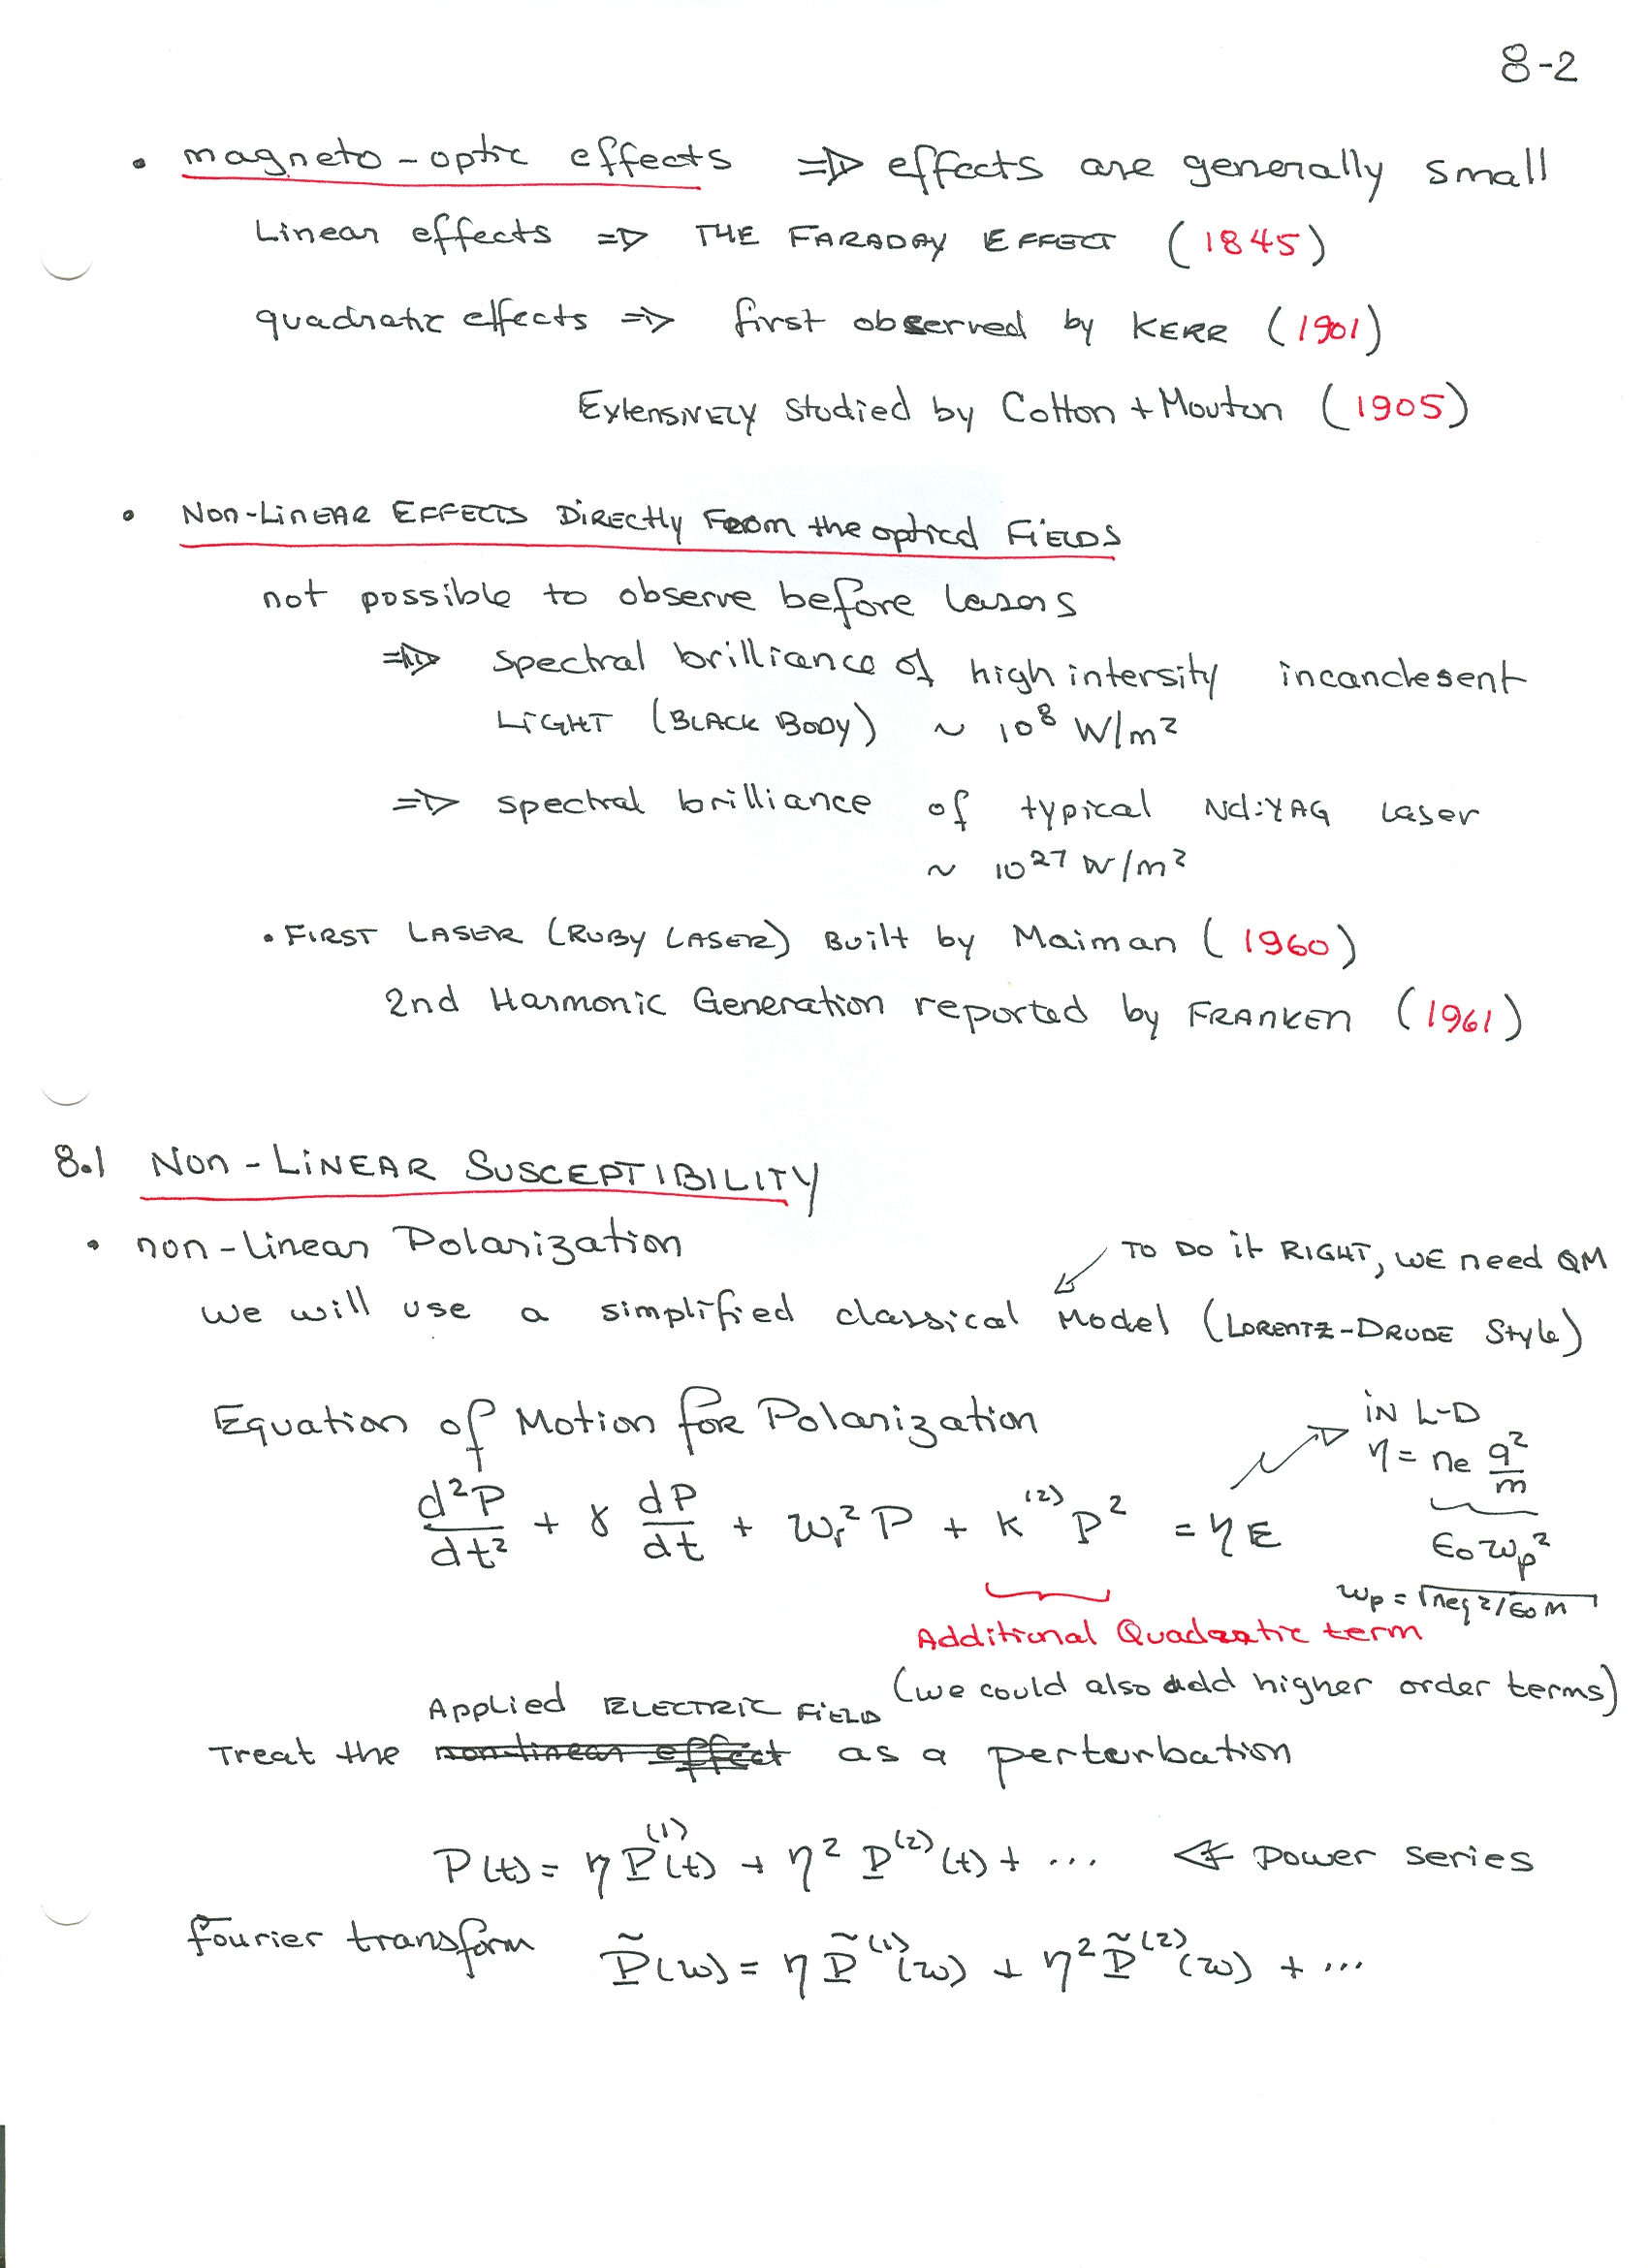 8-2
• magneto-optic effects ⇒ effects are generally small
Linear effects ⇒ THE FARADAY EFFECT (1845)
quadratic effects ⇒ first observed by KERR (1901)
Extensively studied by Cotton + Mouton (1905)
• Non-Linear Effects Directly From the optical Fields
not possible to observe before lasers
⇒ spectral brilliance of high intensity incandesent
Light (Black Body) ~ 10⁸ W/m²
⇒ spectral brilliance of typical Nd:YAG laser
~ 10²⁷ W/m²
• First Laser (Ruby Laser) Built by Maiman (1960)
2nd Harmonic Generation reported by Franken (1961)
8.1 Non-Linear Susceptibility
• non-linear Polarization
To do it RIGHT, we need QM
we will use a simplified classical Model (Lorentz-Drude Style)
Equation of Motion for Polarization
d²P/dt² + γ dP/dt + ωᵣ² P + K⁽²⁾ P² = η E
in L-D
η = ne q²/m
ε₀ ωp²
ωp = √neq²/ε₀m
Additional Quadratic term
(we could also add higher order terms)
Applied Electric Field
Treat the non-linear effect as a perturbation
P(t) = η P⁽¹⁾(t) + η² P⁽²⁾(t) + ... ⇐ power series
fourier transform P̃(ω) = η P̃⁽¹⁾(ω) + η² P̃⁽²⁾(ω) + ...